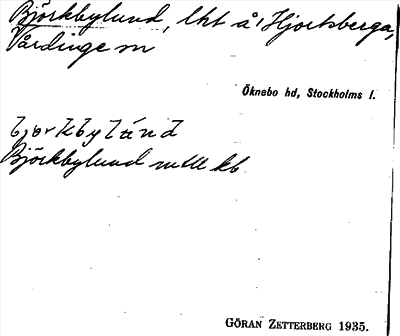 Björkbylund, lht å Hjortsberga,
Vårdinge sn
Öknebo hd, Stockholms l.
Björkbylund
GÖRAN ZETTERBERG 1935.